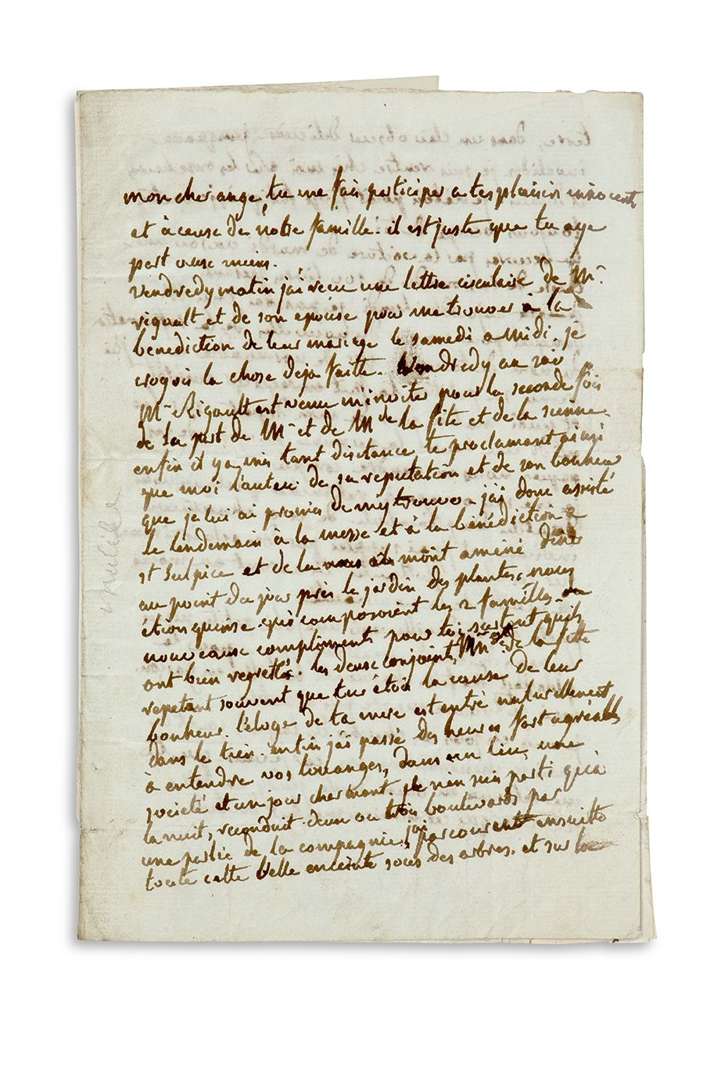 mon cher ange, tu me fais participer a tes plaisirs innocents
et à cause de notre famille. il est juste que tu aye
part aux miens.
vendredy matin j'ai reçu une lettre circulaire de Mr.
rigault et de son epouse pour me trouver à la
benediction de leur mariage le samedi a midi. je
croyois la chose deja faite. vendredy au soir
Mr Rigault est venu m'inviter pour la seconde fois
de la part de Mr et de Me de la fite et de la sienne
enfin il y a mis tant d'instance te proclamant ainsi
que moi l'auteur de sa reputation et de son bonheur
que je lui ai promis de m'y trouver. j'ai donc assisté
le lendemain à la messe et à la bénédiction a
st Sulpice et de la ils m'ont amené diner
au point du jour près le jardin des plantes, nous
étions quinse qui composoient les 2 familles.
nouveaux compliments pour toi surtout qu'ils
ont bien regretté. les deux conjoints, de la fite
repetant souvent que tu étois la cause de leur
bonheur. l'éloge de ta mere est entré naturellement
dans le tien. enfin j'ai passé des heures fort agréables
à entendre vos louanges, dans un lieu, une
société et un jour charmant. je n'en suis parti qu'à
la nuit, reconduit d'un ou trois boulevards par
une partie de la compagnie. j'ai parcouru ensuitte
toute cette belle enceinte sous des arbres. et sur